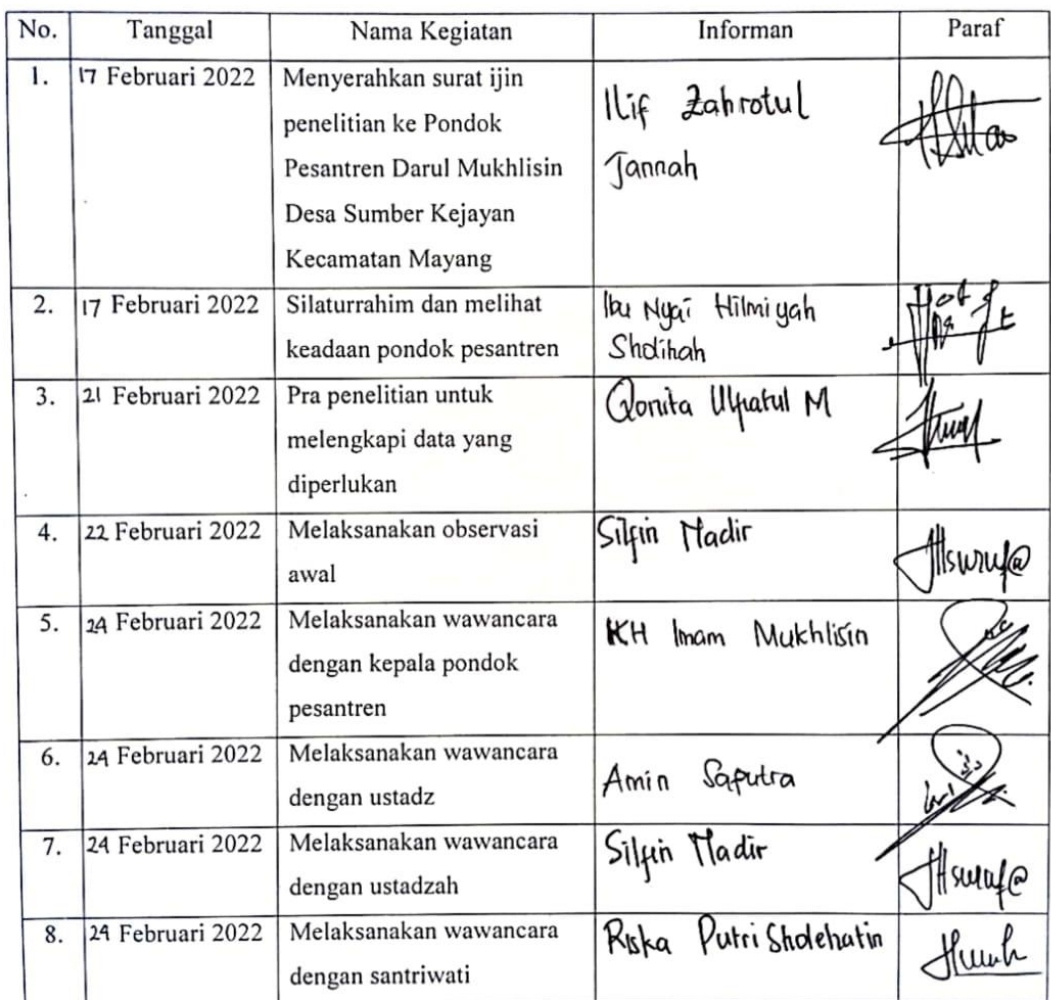 No. Tanggal Nama Kegiatan Informan Paraf
1. 17 Februari 2022 Menyerahkan surat ijin
penelitian ke Pondok
Pesantren Darul Mukhlisin
Desa Sumber Kejayan
Kecamatan Mayang
Ilif Zahrotul
Jannah
2. 17 Februari 2022 Silaturrahim dan melihat
keadaan pondok pesantren
Ibu Nyai Hilmiyah
Sholihah
3. 21 Februari 2022 Pra penelitian untuk
melengkapi data yang
diperlukan
Qonita Ulfiatul M
4. 22 Februari 2022 Melaksanakan observasi
awal
Silfin Nadir
5. 24 Februari 2022 Melaksanakan wawancara
dengan kepala pondok
pesantren
KH Imam Mukhlisin
6. 24 Februari 2022 Melaksanakan wawancara
dengan ustadz
Amin Saputra
7. 24 Februari 2022 Melaksanakan wawancara
dengan ustadzah
Silfin Nadir
8. 24 Februari 2022 Melaksanakan wawancara
dengan santriwati
Riska Putri Sholehatin